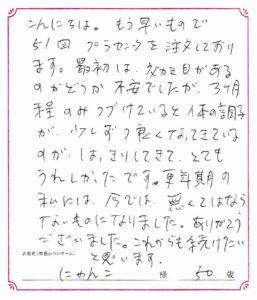 こんにちは。もう早いもので
51回 プラセンタを注文しており
ます。最初は、効力目がある
のかどうか不安でしたが、3ヶ月
程のみつづけていると体の調子
が、少しずつ良くなってきている
のが、はっきりしてきて、とても
うれしかったです。更年期の
私には、今では、無くてはなら
ないものになりました。ありがとう
ございました。これからも続けたい
と思います。
お名前(本名orペンネーム)
にゃんこ 様 50 歳